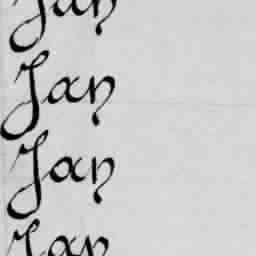 Jan
Jan
Jan
Jan